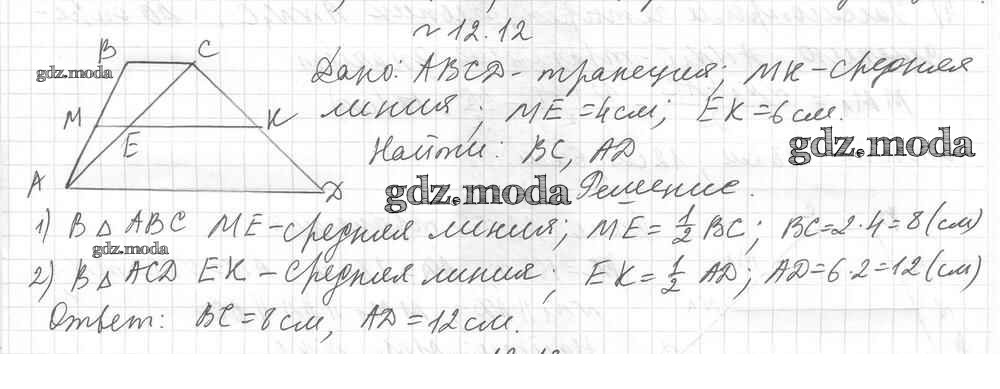 №12.12
B C
gdz.moda
Дано: ABCD - трапеция; MK - средняя
линия; ME = 4см; EK = 6см.
M K
E
Найти: BC, AD
gdz.moda
A D
gdz.moda
Решение.
1) В △ ABC ME - средняя линия; ME = 1/2 BC; BC = 2·4 = 8 (см)
gdz.moda
2) В △ ACD EK - средняя линия; EK = 1/2 AD; AD = 6·2 = 12 (см)
Ответ: BC = 8 см, AD = 12 см.